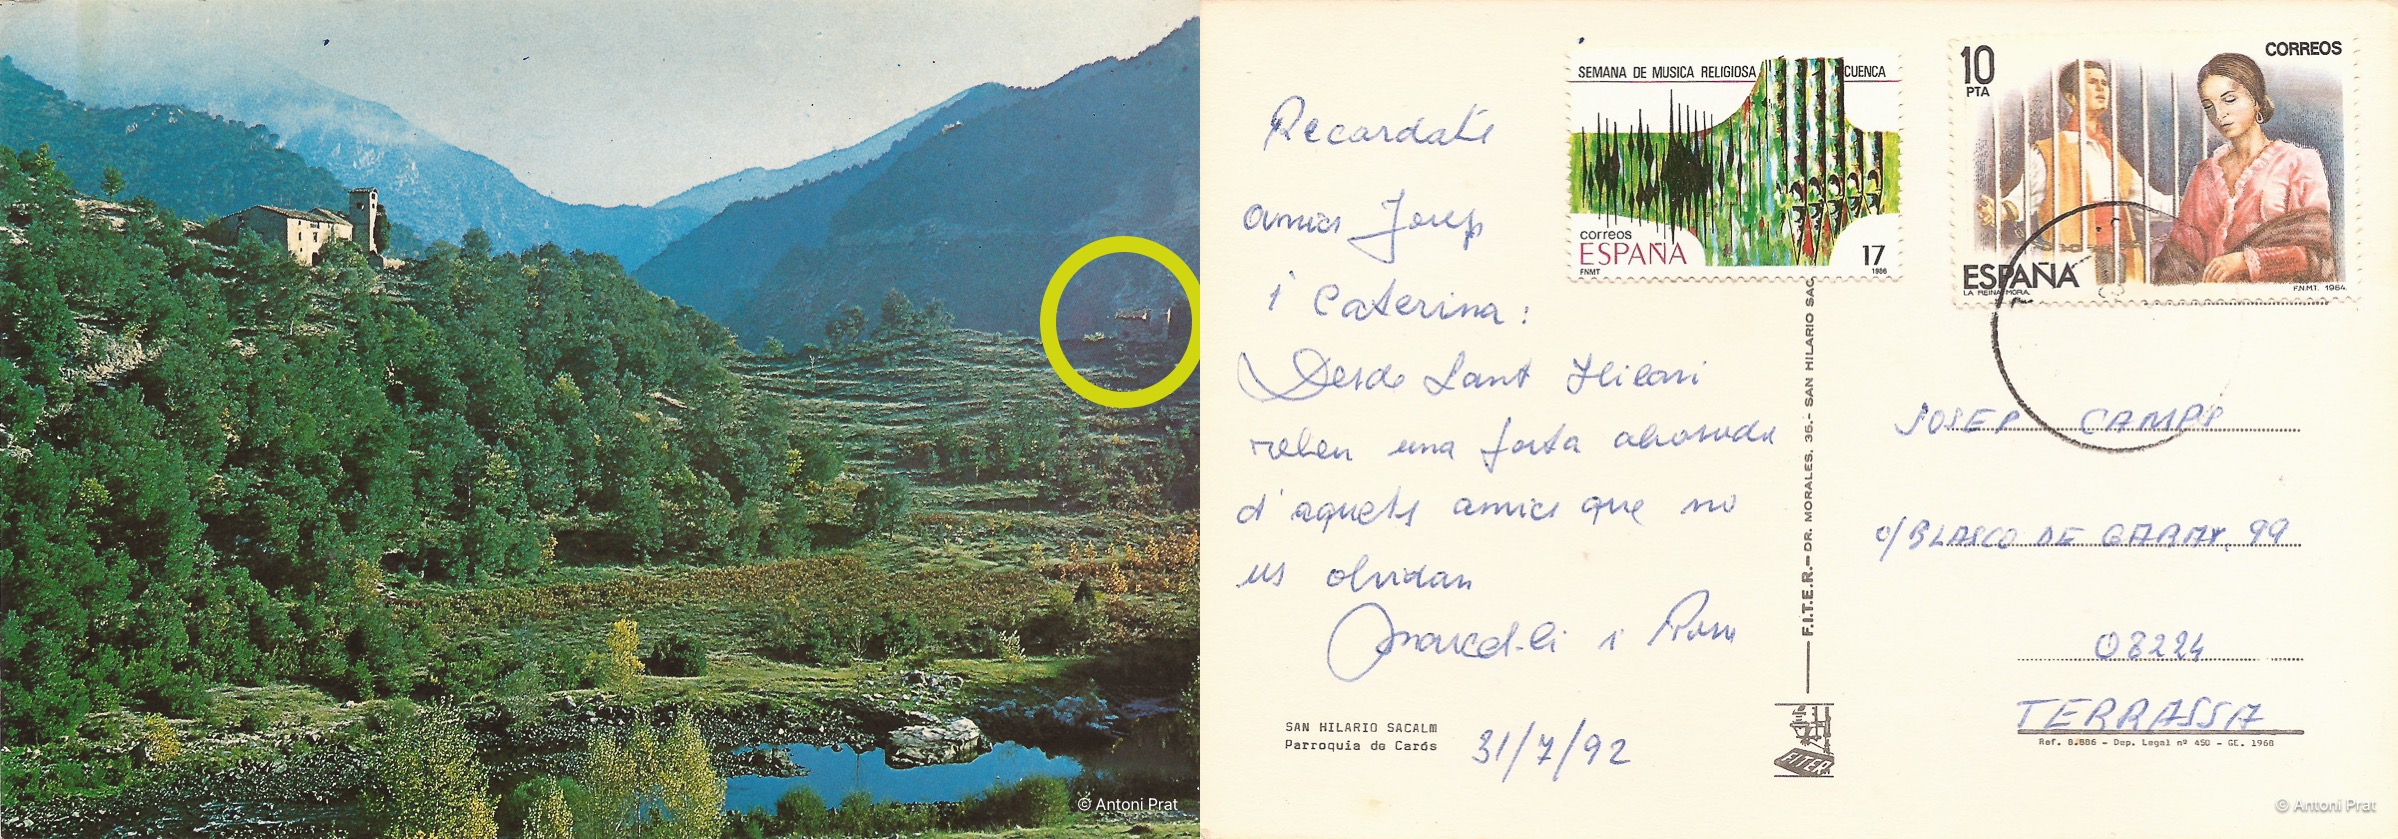 © Antoni Prat
SEMANA DE MUSICA RELIGIOSA CUENCA
correos
ESPAÑA
17
FNMT
1986
10
PTA
CORREOS
ESPAÑA
LA REINA MORA.
F.N.M.T. 1984.
Recardats
amics Josep
i Caterina:
Desde Sant Hilari
reben una forta abrasada
d'aquets amics que no
us olvidan
Marcel·li i Rosa
31/7/92
SAN HILARIO SACALM
Parroquia de Carós
F.I.T.E.R.- DR. MORALES, 36.- SAN HILARIO SAC
FITER
JOSEP CAMPS
c/ BLASCO DE GARAY, 99
08224
TERRASSA
Ref. 8.886 - Dep. Legal nº 450 - GE. 1968
© Antoni Prat